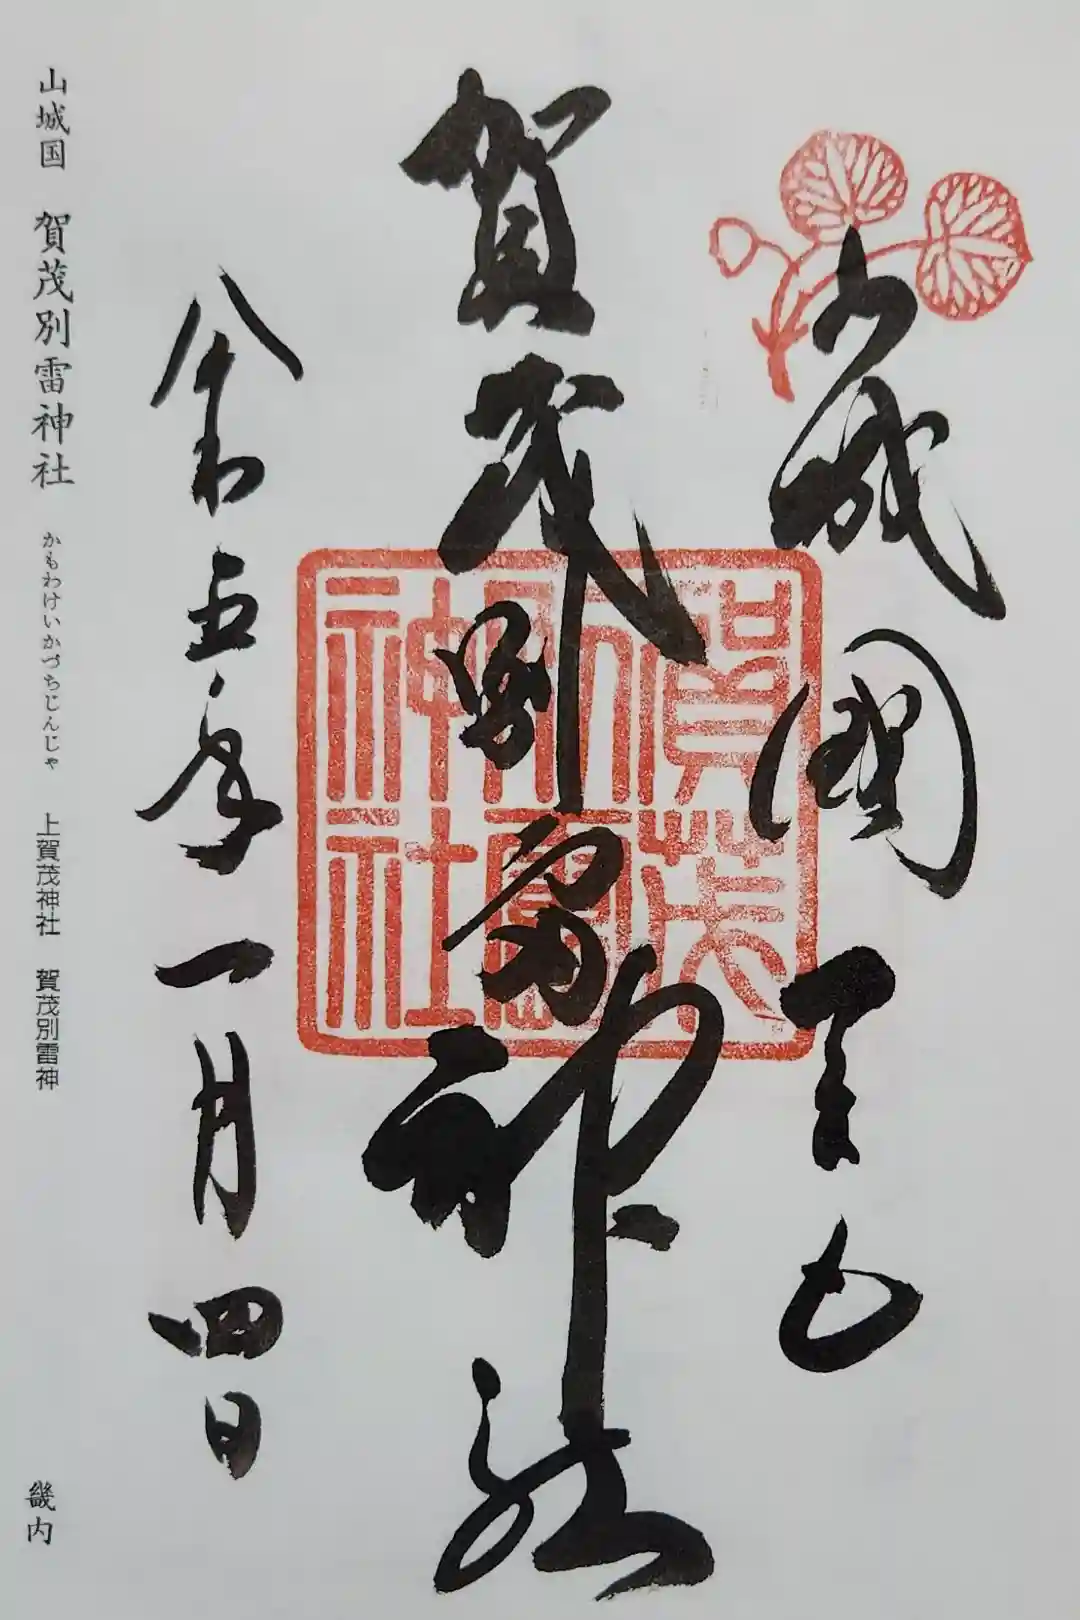 山城國一之宮
賀茂別雷神社
賀茂
別雷
神社
令和五年一月四日
山城国 賀茂別雷神社 かもわけいかづちじんじゃ 上賀茂神社 賀茂別雷神 畿内